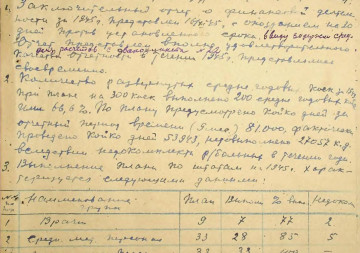 1. Заключительный отчет по финансовой деятель-
ности за 1945г. представлен с опозданием на
дней против установленного срока, ввиду
Отчет представлен вполне удовлетворительно.
отчетности в течении 1945г. представлялись
своевременно.
2. Количество развернутых среднегодовых коек за
при плане на 300 коек выполнено 200 среднегодовых
или 66,6%. По плану предусмотрено койко дней за
отчетный период времени (5 мес) 81,000, фактически
проведено койко дней 53943, недовыполнено 27057 к.д.
вследствии недокомплекта больных в течении года
3. Выполнение плана по штатам в 1945г. харак-
теризуется следующими данными:
№ Наименование группы План Выполн % вып. Недоком
1 Врачи 9 7 77 2
2 Средн. мед. персонал 33 28 85 5